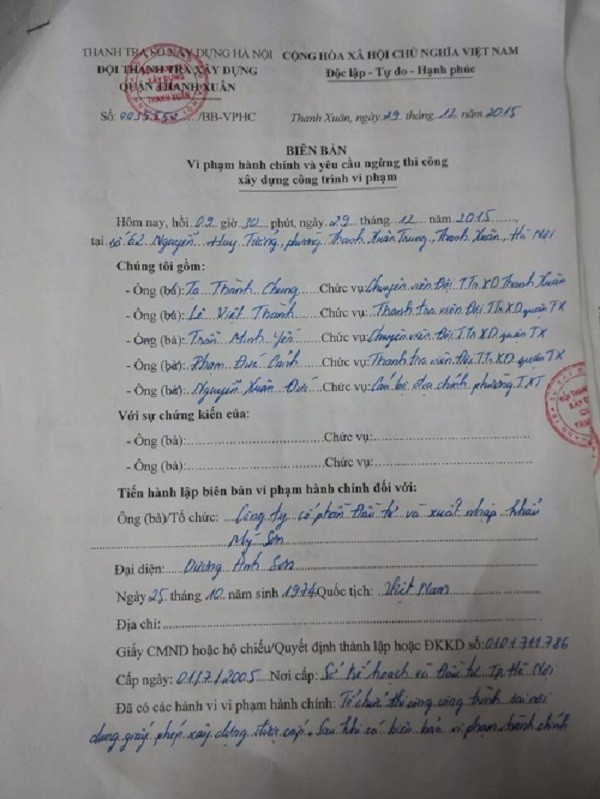 THANH TRA SỞ XÂY DỰNG HÀ NỘI
ĐỘI THANH TRA XÂY DỰNG
QUẬN THANH XUÂN
CỘNG HÒA XÃ HỘI CHỦ NGHĨA VIỆT NAM
Độc lập - Tự do - Hạnh phúc
Số: /BB-VPHC
Thanh Xuân, ngày 29 tháng 12 năm 2015
BIÊN BẢN
Vi phạm hành chính và yêu cầu ngừng thi công
xây dựng công trình vi phạm
Hôm nay, hồi 09 giờ 30 phút, ngày 29 tháng 12 năm 2015
tại số 62 Nguyễn Huy Tưởng, phường Thanh Xuân Trung, Thanh Xuân, Hà Nội
Chúng tôi gồm:
- Ông (bà): Tạ Thành Chung Chức vụ: Chuyên viên Đội TTr XD Thanh Xuân
- Ông (bà): Lê Việt Thành Chức vụ: Thanh tra viên Đội TTr XD quận TX
- Ông (bà): Trần Minh Yên Chức vụ: Chuyên viên Đội TTr XD quận TX
- Ông (bà): Phạm Đức Cảnh Chức vụ: Thanh tra viên Đội TTr XD quận TX
- Ông (bà): Nguyễn Xuân Đức Chức vụ: Cán bộ địa chính phường TXT
Với sự chứng kiến của:
- Ông (bà): Chức vụ:
- Ông (bà): Chức vụ:
Tiến hành lập biên bản vi phạm hành chính đối với:
Ông (bà)/Tổ chức: Công ty cổ phần Đầu tư và xuất nhập khẩu
Mỹ Sơn
Đại diện: Dương Anh Sơn
Ngày 25 tháng 10 năm sinh 1974 Quốc tịch: Việt Nam
Địa chỉ:
Giấy CMND hoặc hộ chiếu/Quyết định thành lập hoặc ĐKKD số: 0101711786
Cấp ngày: 01/7/2005 Nơi cấp: Sở Kế hoạch và Đầu tư Tp. Hà Nội
Đã có các hành vi vi phạm hành chính: Tổ chức thi công công trình sai nội
dung giấy phép xây dựng được cấp. Sau khi có biên bản vi phạm hành chính